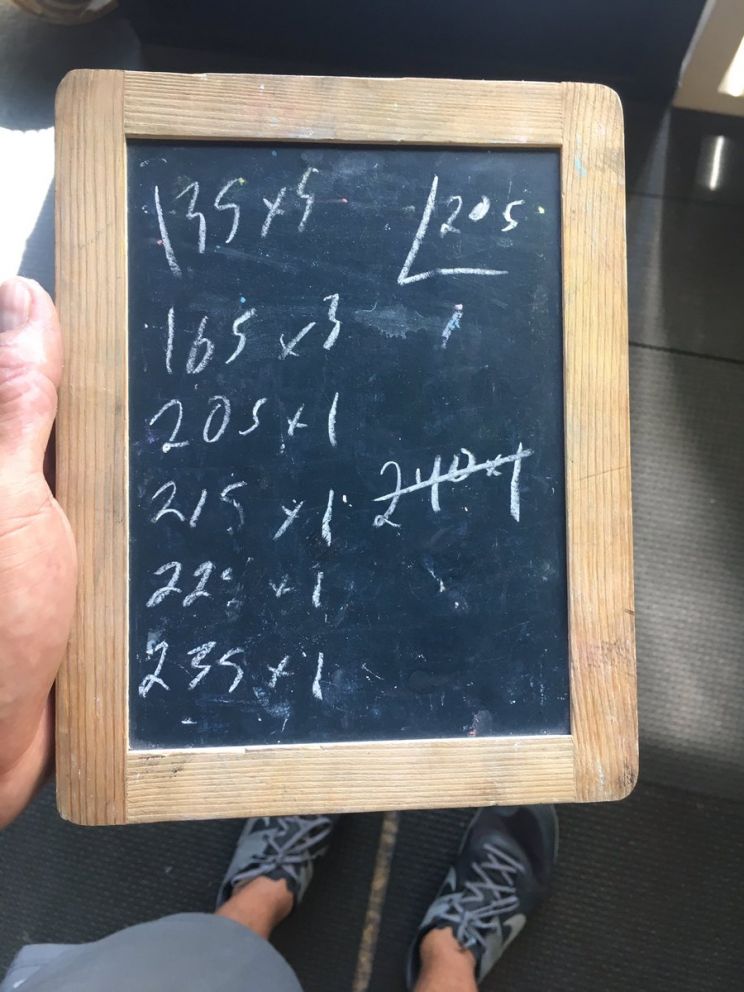 135x5
205
165x3
205x1
215x1
240x1
225x1
235x1